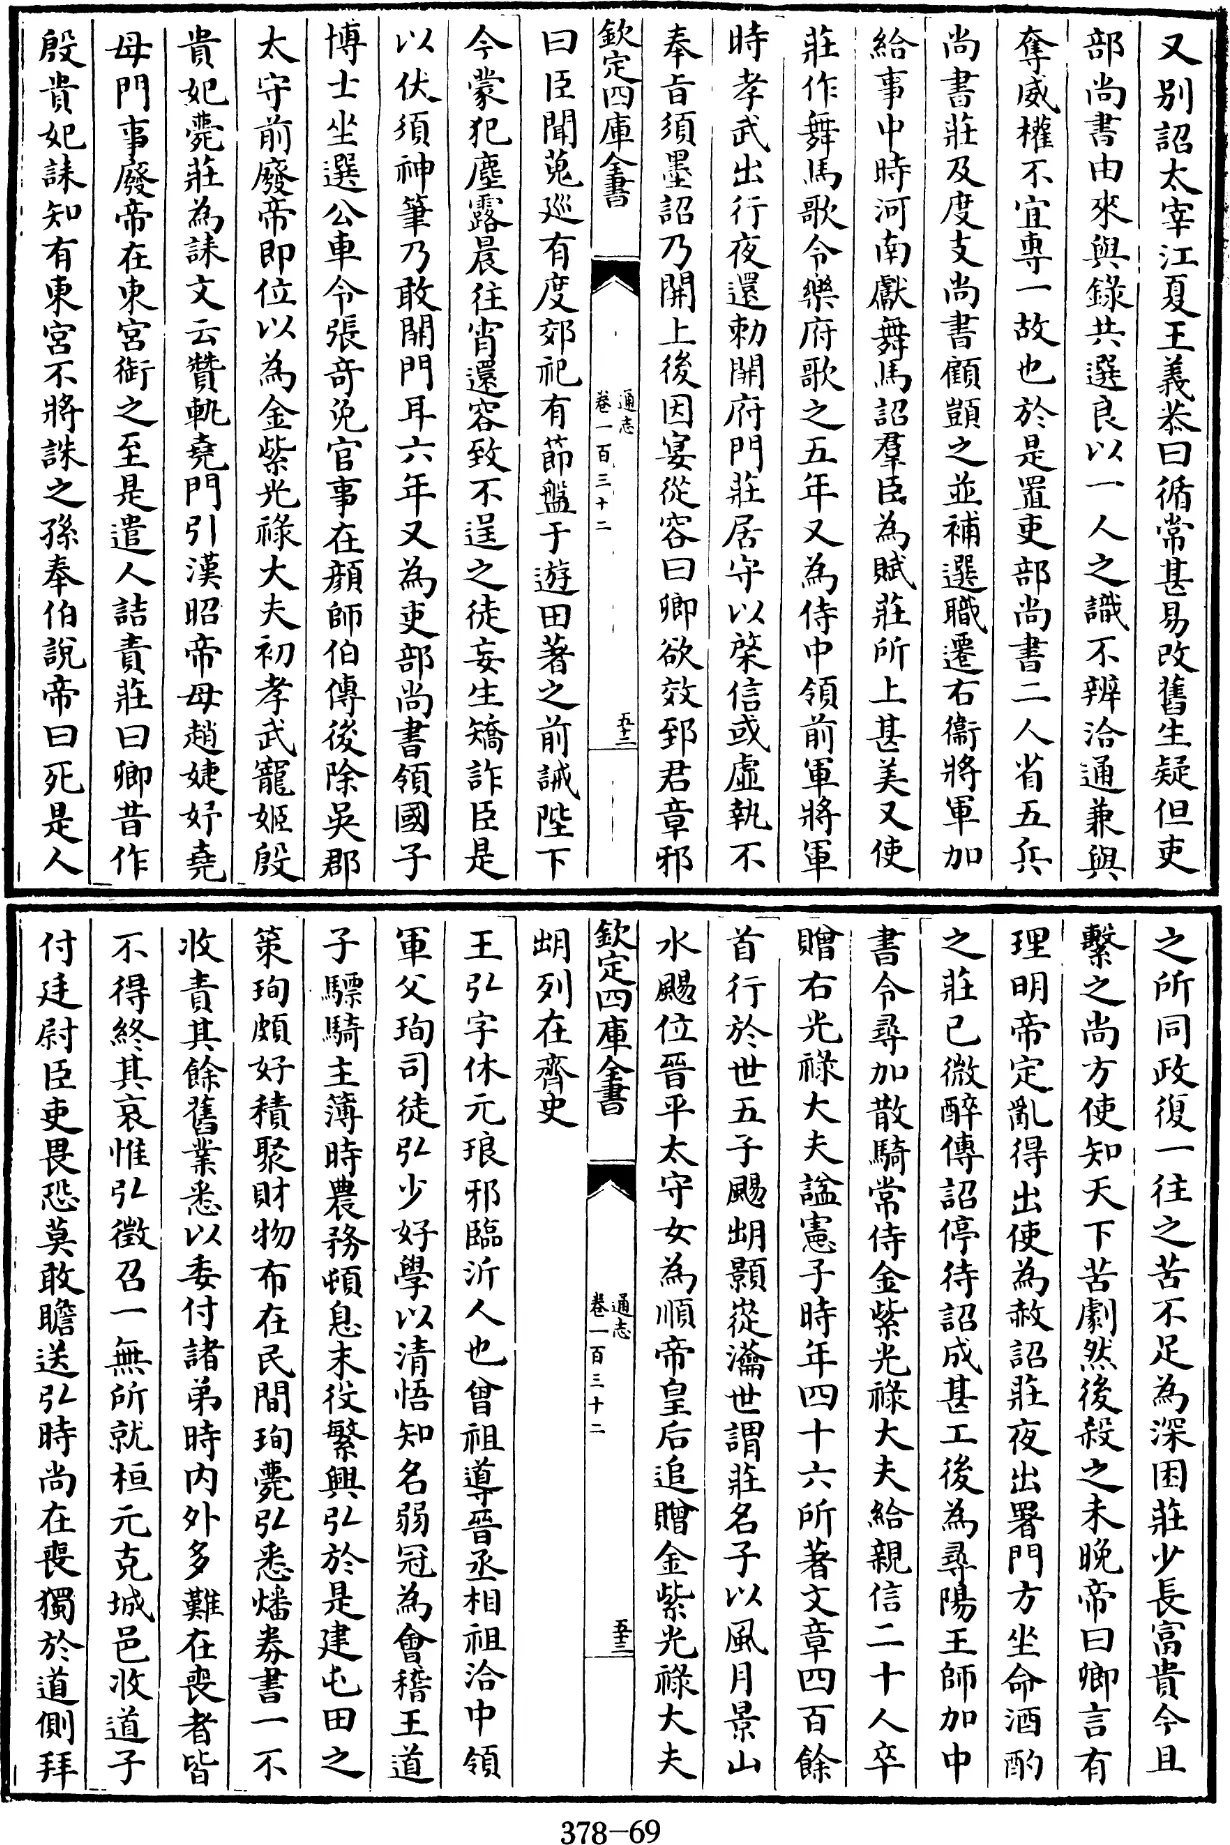 又別詔太宰江夏王義恭曰循常甚易改舊生疑但吏
部尚書由來與錄共選良以一人之識不辨洽通兼與
奪威權不宜專一故也於是置吏部尚書二人省五兵
尚書莊及度支尚書顧顗之並補選職遷右衞將軍加
給事中時河南獻舞馬詔羣臣為賦莊所上甚美又使
莊作舞馬歌令樂府歌之五年又為侍中領前軍將軍
時孝武出行夜還勅開府門莊居守以棨信或虛執不
奉旨須墨詔乃開上後因宴從容曰卿欲效郅君章邪
欽定四庫全書
通志
卷一百三十二
五十二
曰臣聞蒐廵有度郊祀有節盤于遊田著之前誡陛下
今蒙犯塵露晨往宵還容致不逞之徒妄生矯詐臣是
以伏須神筆乃敢開門耳六年又為吏部尚書領國子
博士坐選公車令張奇免官事在顏師伯傳後除吳郡
太守前廢帝即位以為金紫光祿大夫初孝武寵姬殷
貴妃薨莊為誄文云贊軌堯門引漢昭帝母趙婕妤堯
母門事廢帝在東宮銜之至是遣人詰責莊曰卿昔作
殷貴妃誄知有東宮不將誅之孫奉伯說帝曰死是人
之所同政復一往之苦不足為深困莊少長富貴今且
繫之尚方使知天下苦劇然後殺之未晚帝曰卿言有
理明帝定亂得出使為赦詔莊夜出署門方坐命酒酌
之莊已微醉傳詔停待詔成甚工後為尋陽王師加中
書令尋加散騎常侍金紫光祿大夫給親信二十人卒
贈右光祿大夫諡憲子時年四十六所著文章四百餘
首行於世五子颺朏顥嵸瀹世謂莊名子以風月景山
水颺位晉平太守女為順帝皇后追贈金紫光祿大夫
欽定四庫全書
通志
卷一百三十二
五十三
朏列在齊史
王弘字休元琅邪臨沂人也曾祖導晉丞相祖洽中領
軍父珣司徒弘少好學以清悟知名弱冠為會稽王道
子驃騎主簿時農務頓息末役繁興弘於是建屯田之
策珣頗好積聚財物布在民間珣薨弘悉燔券書一不
收責其餘舊業悉以委付諸弟時内外多難在喪者皆
不得終其哀惟弘徵召一無所就桓元克城邑收道子
付廷尉臣吏畏恐莫敢瞻送弘時尚在喪獨於道側拜
378-69